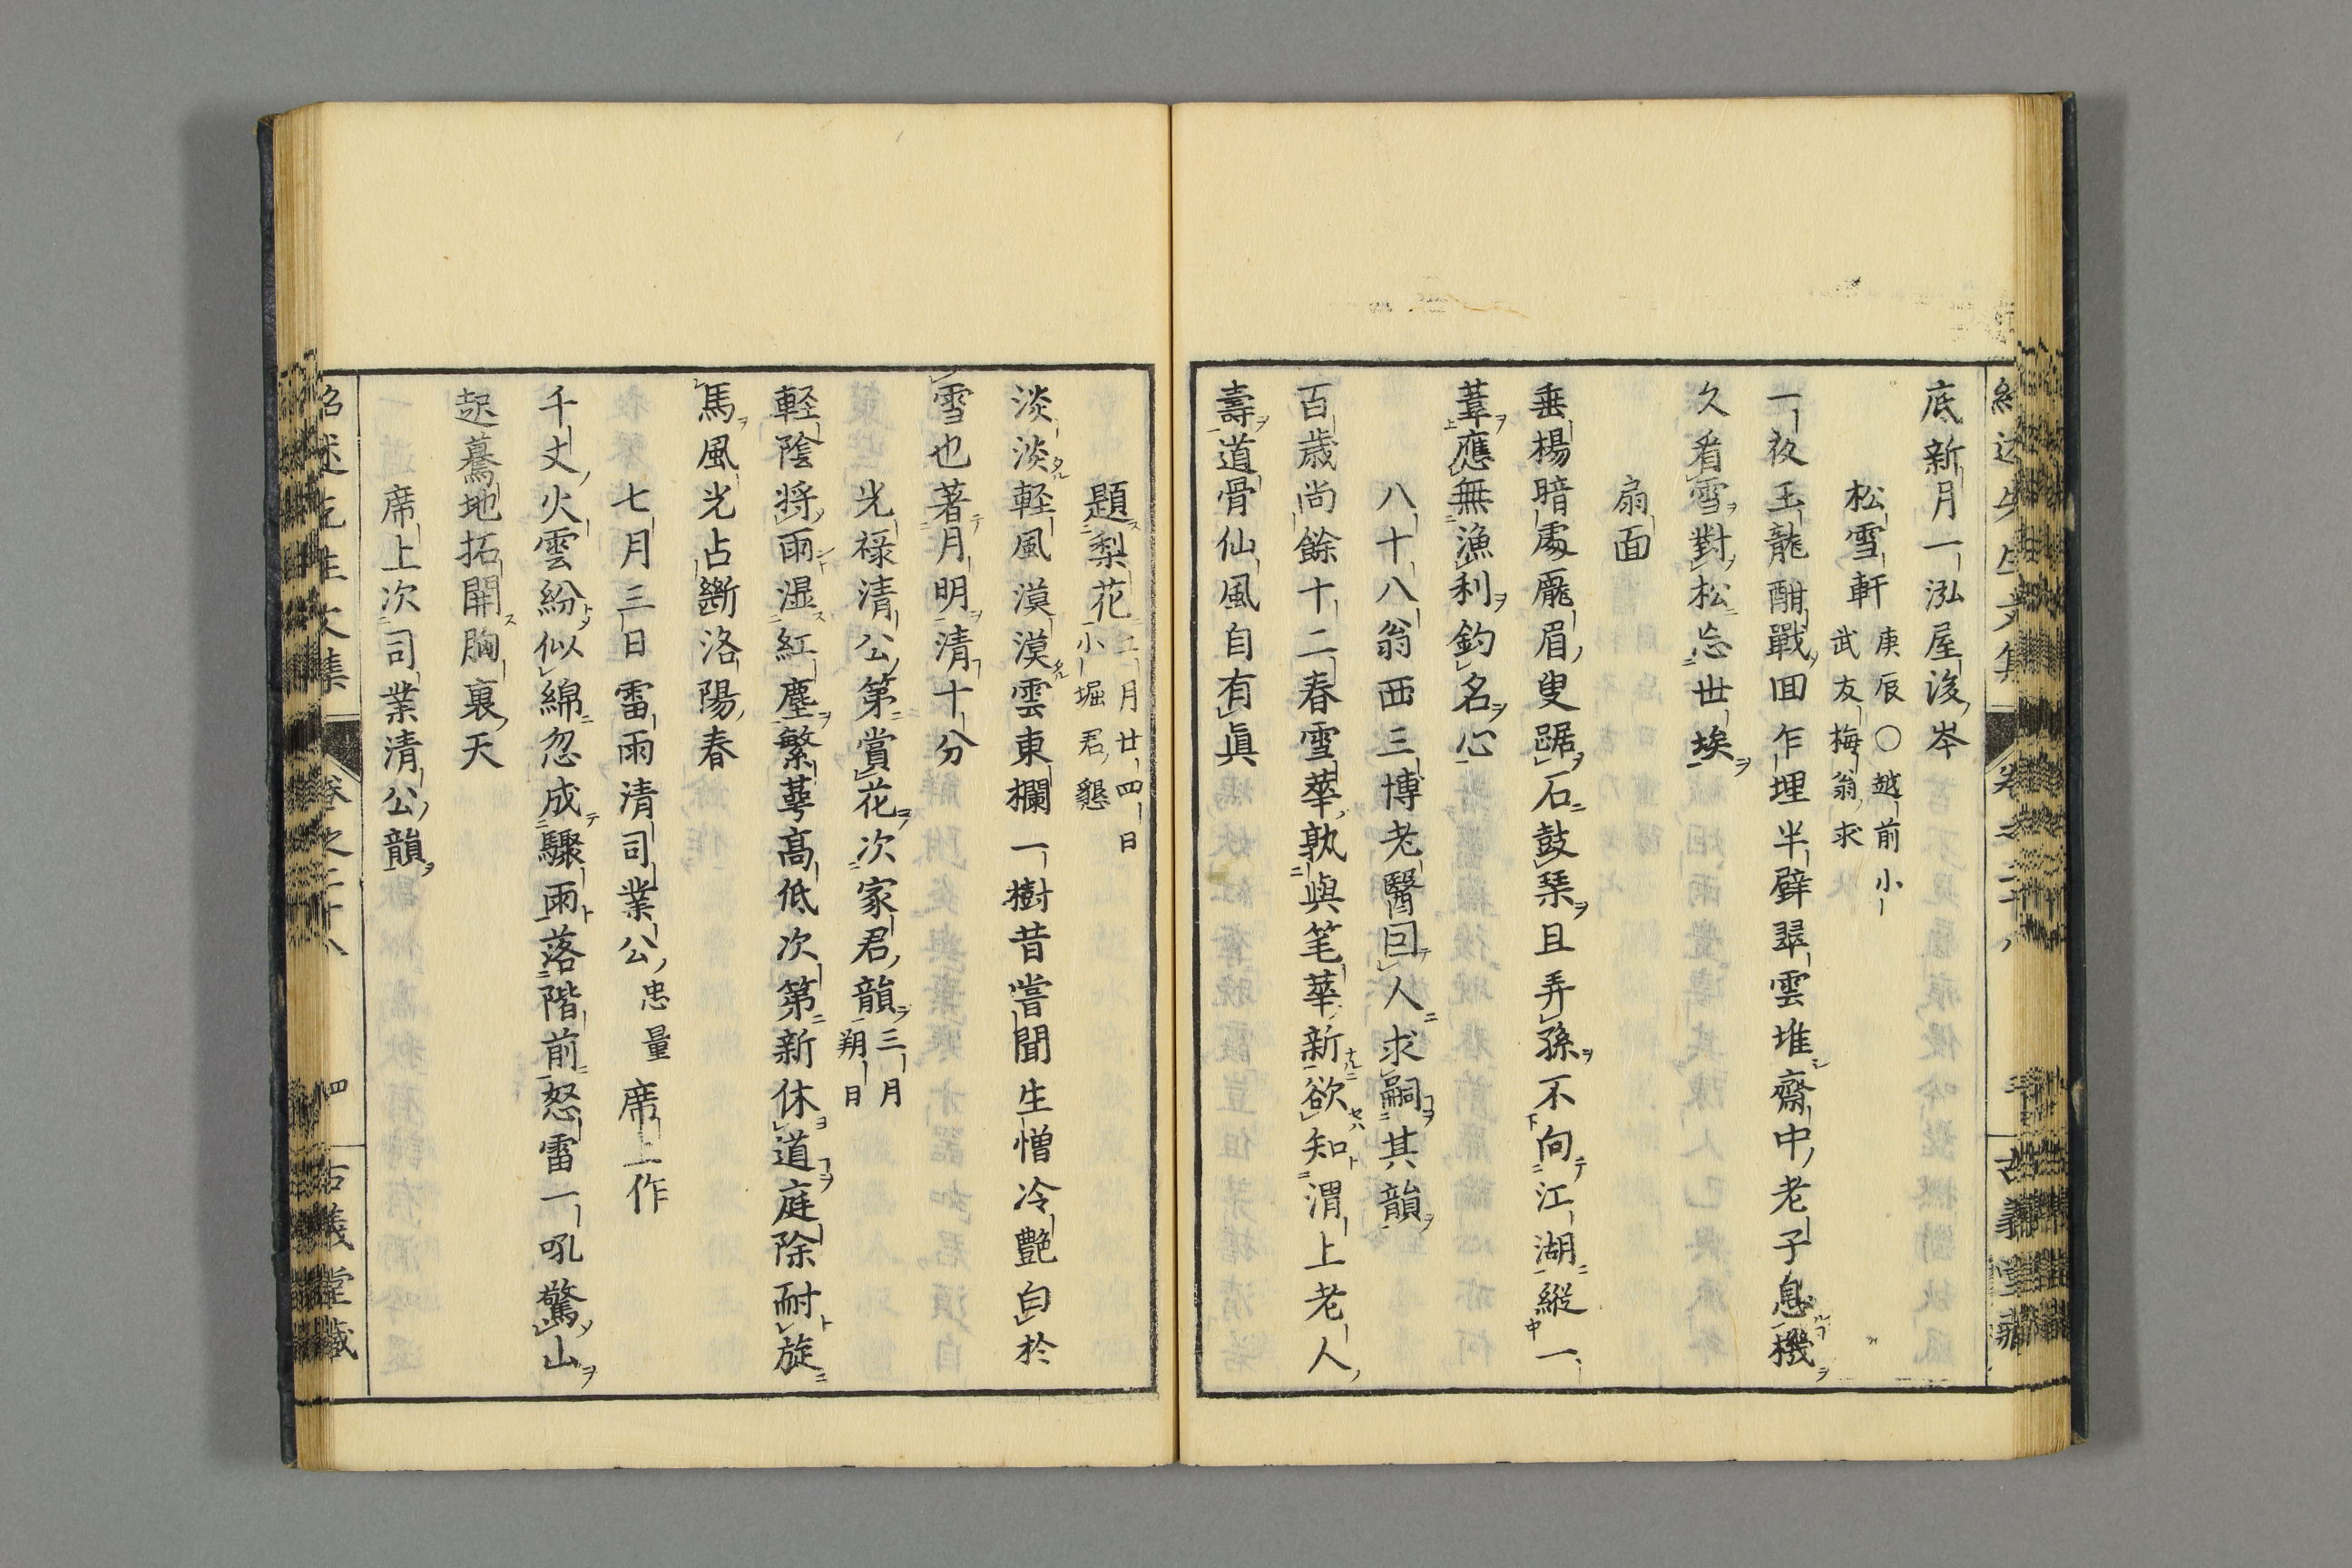 底新月一泓屋後岑
松雪軒 庚辰○越前小
武友梅翁求
一夜玉龍酣戰回乍埋半壁翠雲堆齋中老子息機
久看雪對松忘世埃
扇面
垂楊暗處龐眉叟踞石鼓琹且弄孫不向江湖縱一
葦應無漁利釣名心
八十八翁西三博老醫回人求嗣其韻
百歳尚餘十二春雪華孰與笔華新欲知渭上老人
壽道骨仙風自有眞
題梨花 二月廿四日
小堀君懇
淡淡軽風漠漠雲東欄一樹昔嘗聞生憎冷艶白於
雪也著月明清十分
光禄清公第賞花次家君韻 三月
朔日
軽陰将雨湿紅塵繁蕚髙低次第新休道庭除耐旋
馬風光占斷洛陽春
七月三日雷雨清司業公忠量席上作
千丈火雲紛似綿忽成驟雨落階前怒雷一吼驚山
起驀地拓開胸裏天
席上次司業清公韻
紹述先生文集 卷之二十八 四 古義堂藏